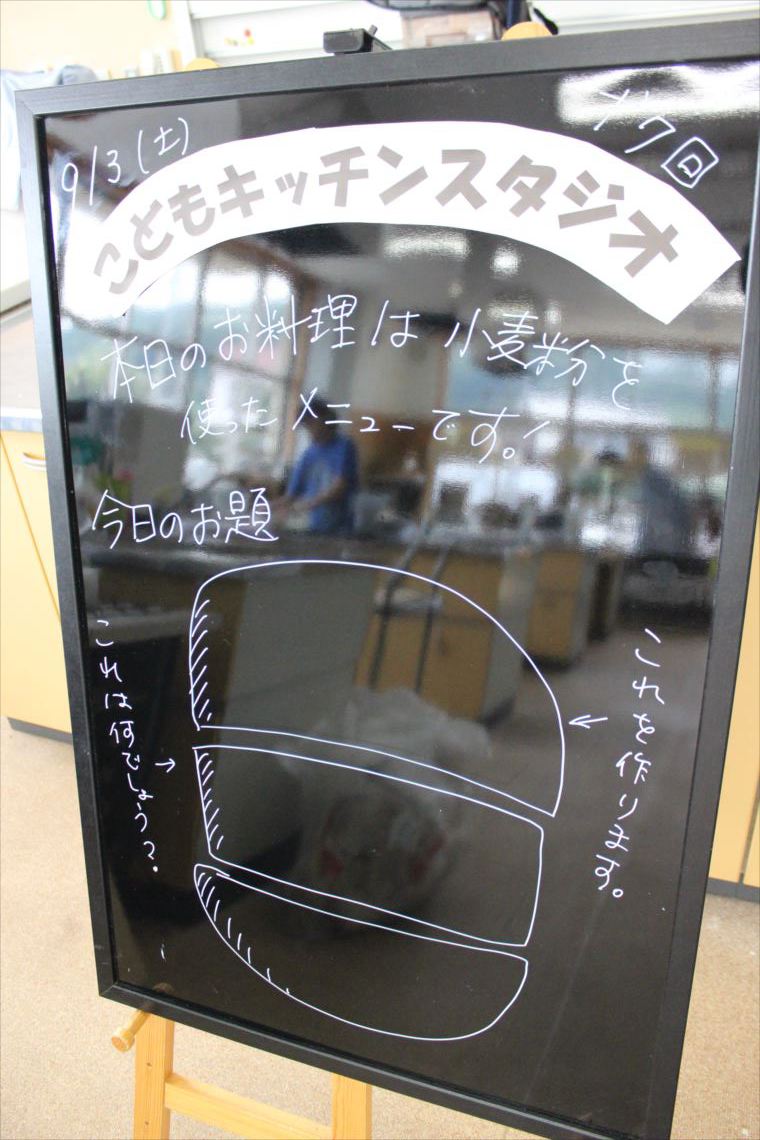 9/3(土)
17回
こどもキッチンスタジオ
本日のお料理は小麦粉を
使ったメニューです。!
今日のお題
これは何でしょう?
これを作ります。